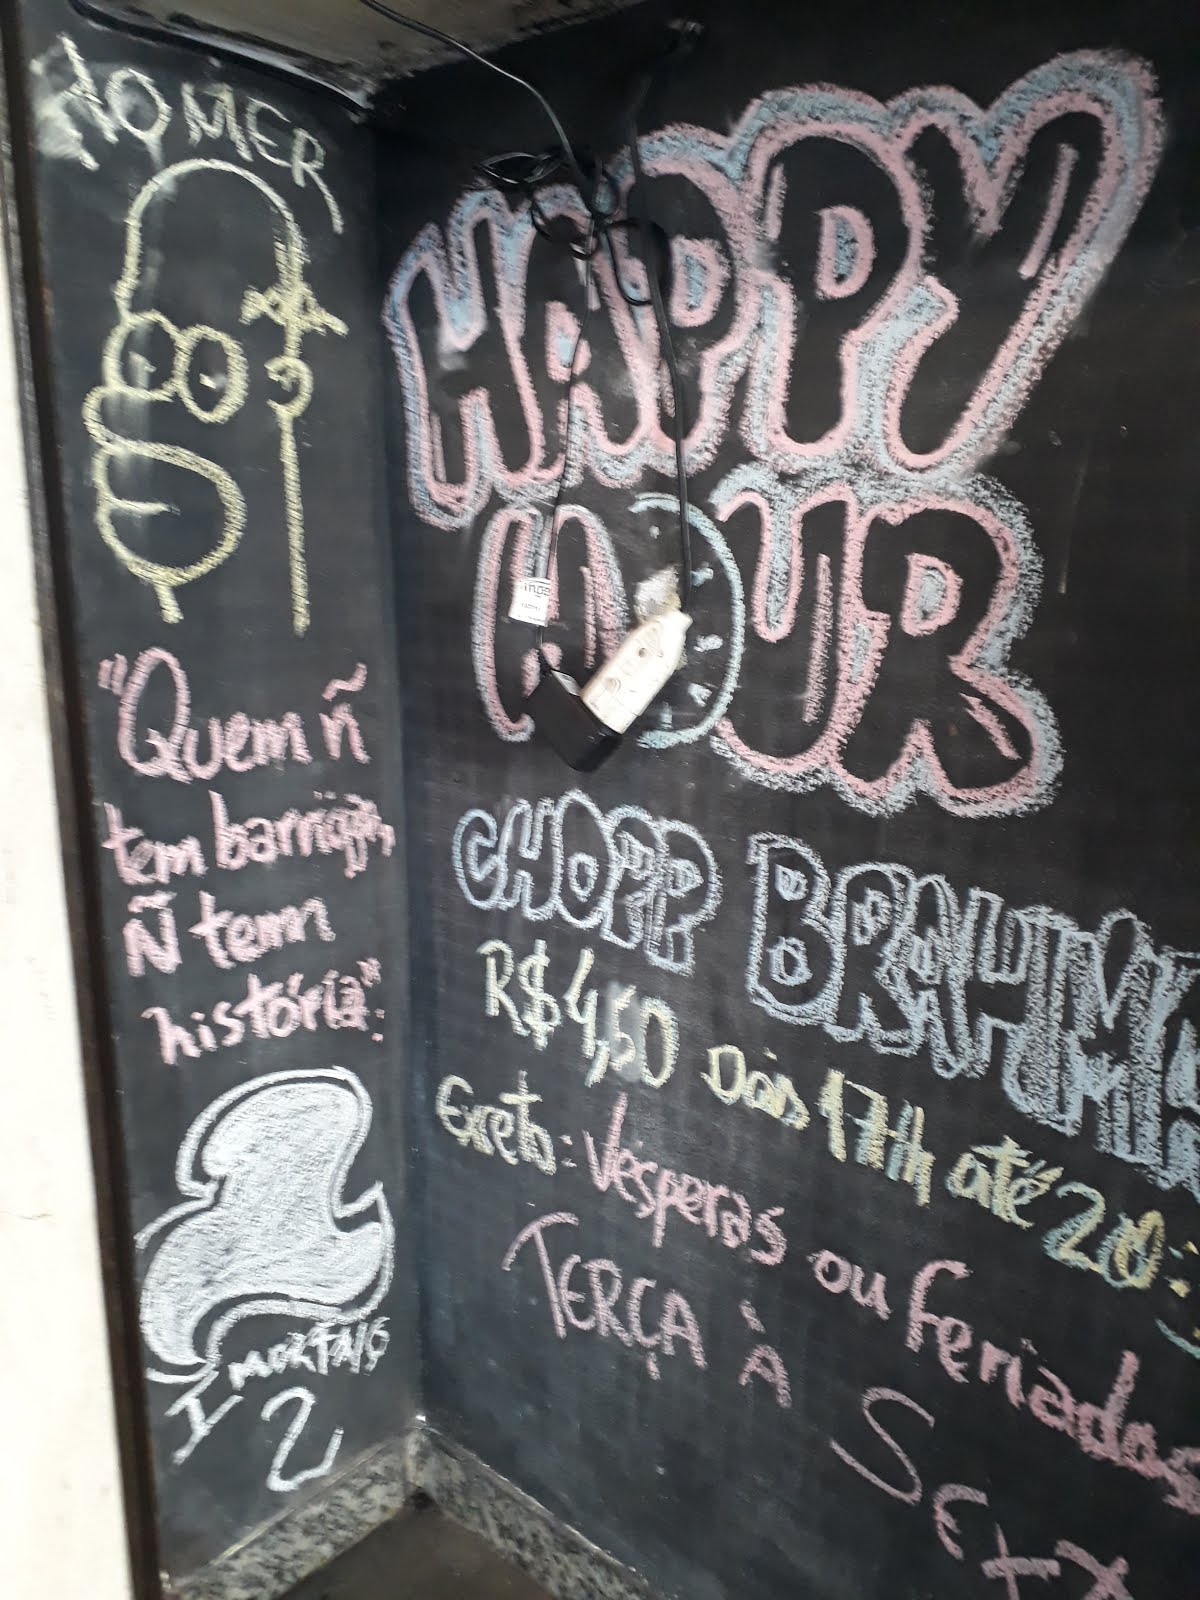 HOMER
"Quem ñ
tem barriga,
Ñ tem
história"
2
HAPPY
HOUR
CHOPP BRAHM
R$4,50 Dás 17H até 20:
Exceto: Vésperas ou feriados
TERÇA À
SEXT